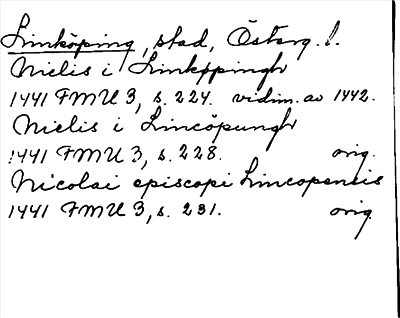 Linköping, stad, Österg. l.
Nielis i Linkøpingh
1441 FMU 3, s. 224. vidim. av 1442.
Nielis i Lincöpungh
1441 FMU 3, s. 228. orig.
Nicolai episcopi Lincopensis
1441 FMU 3, s. 231. orig.